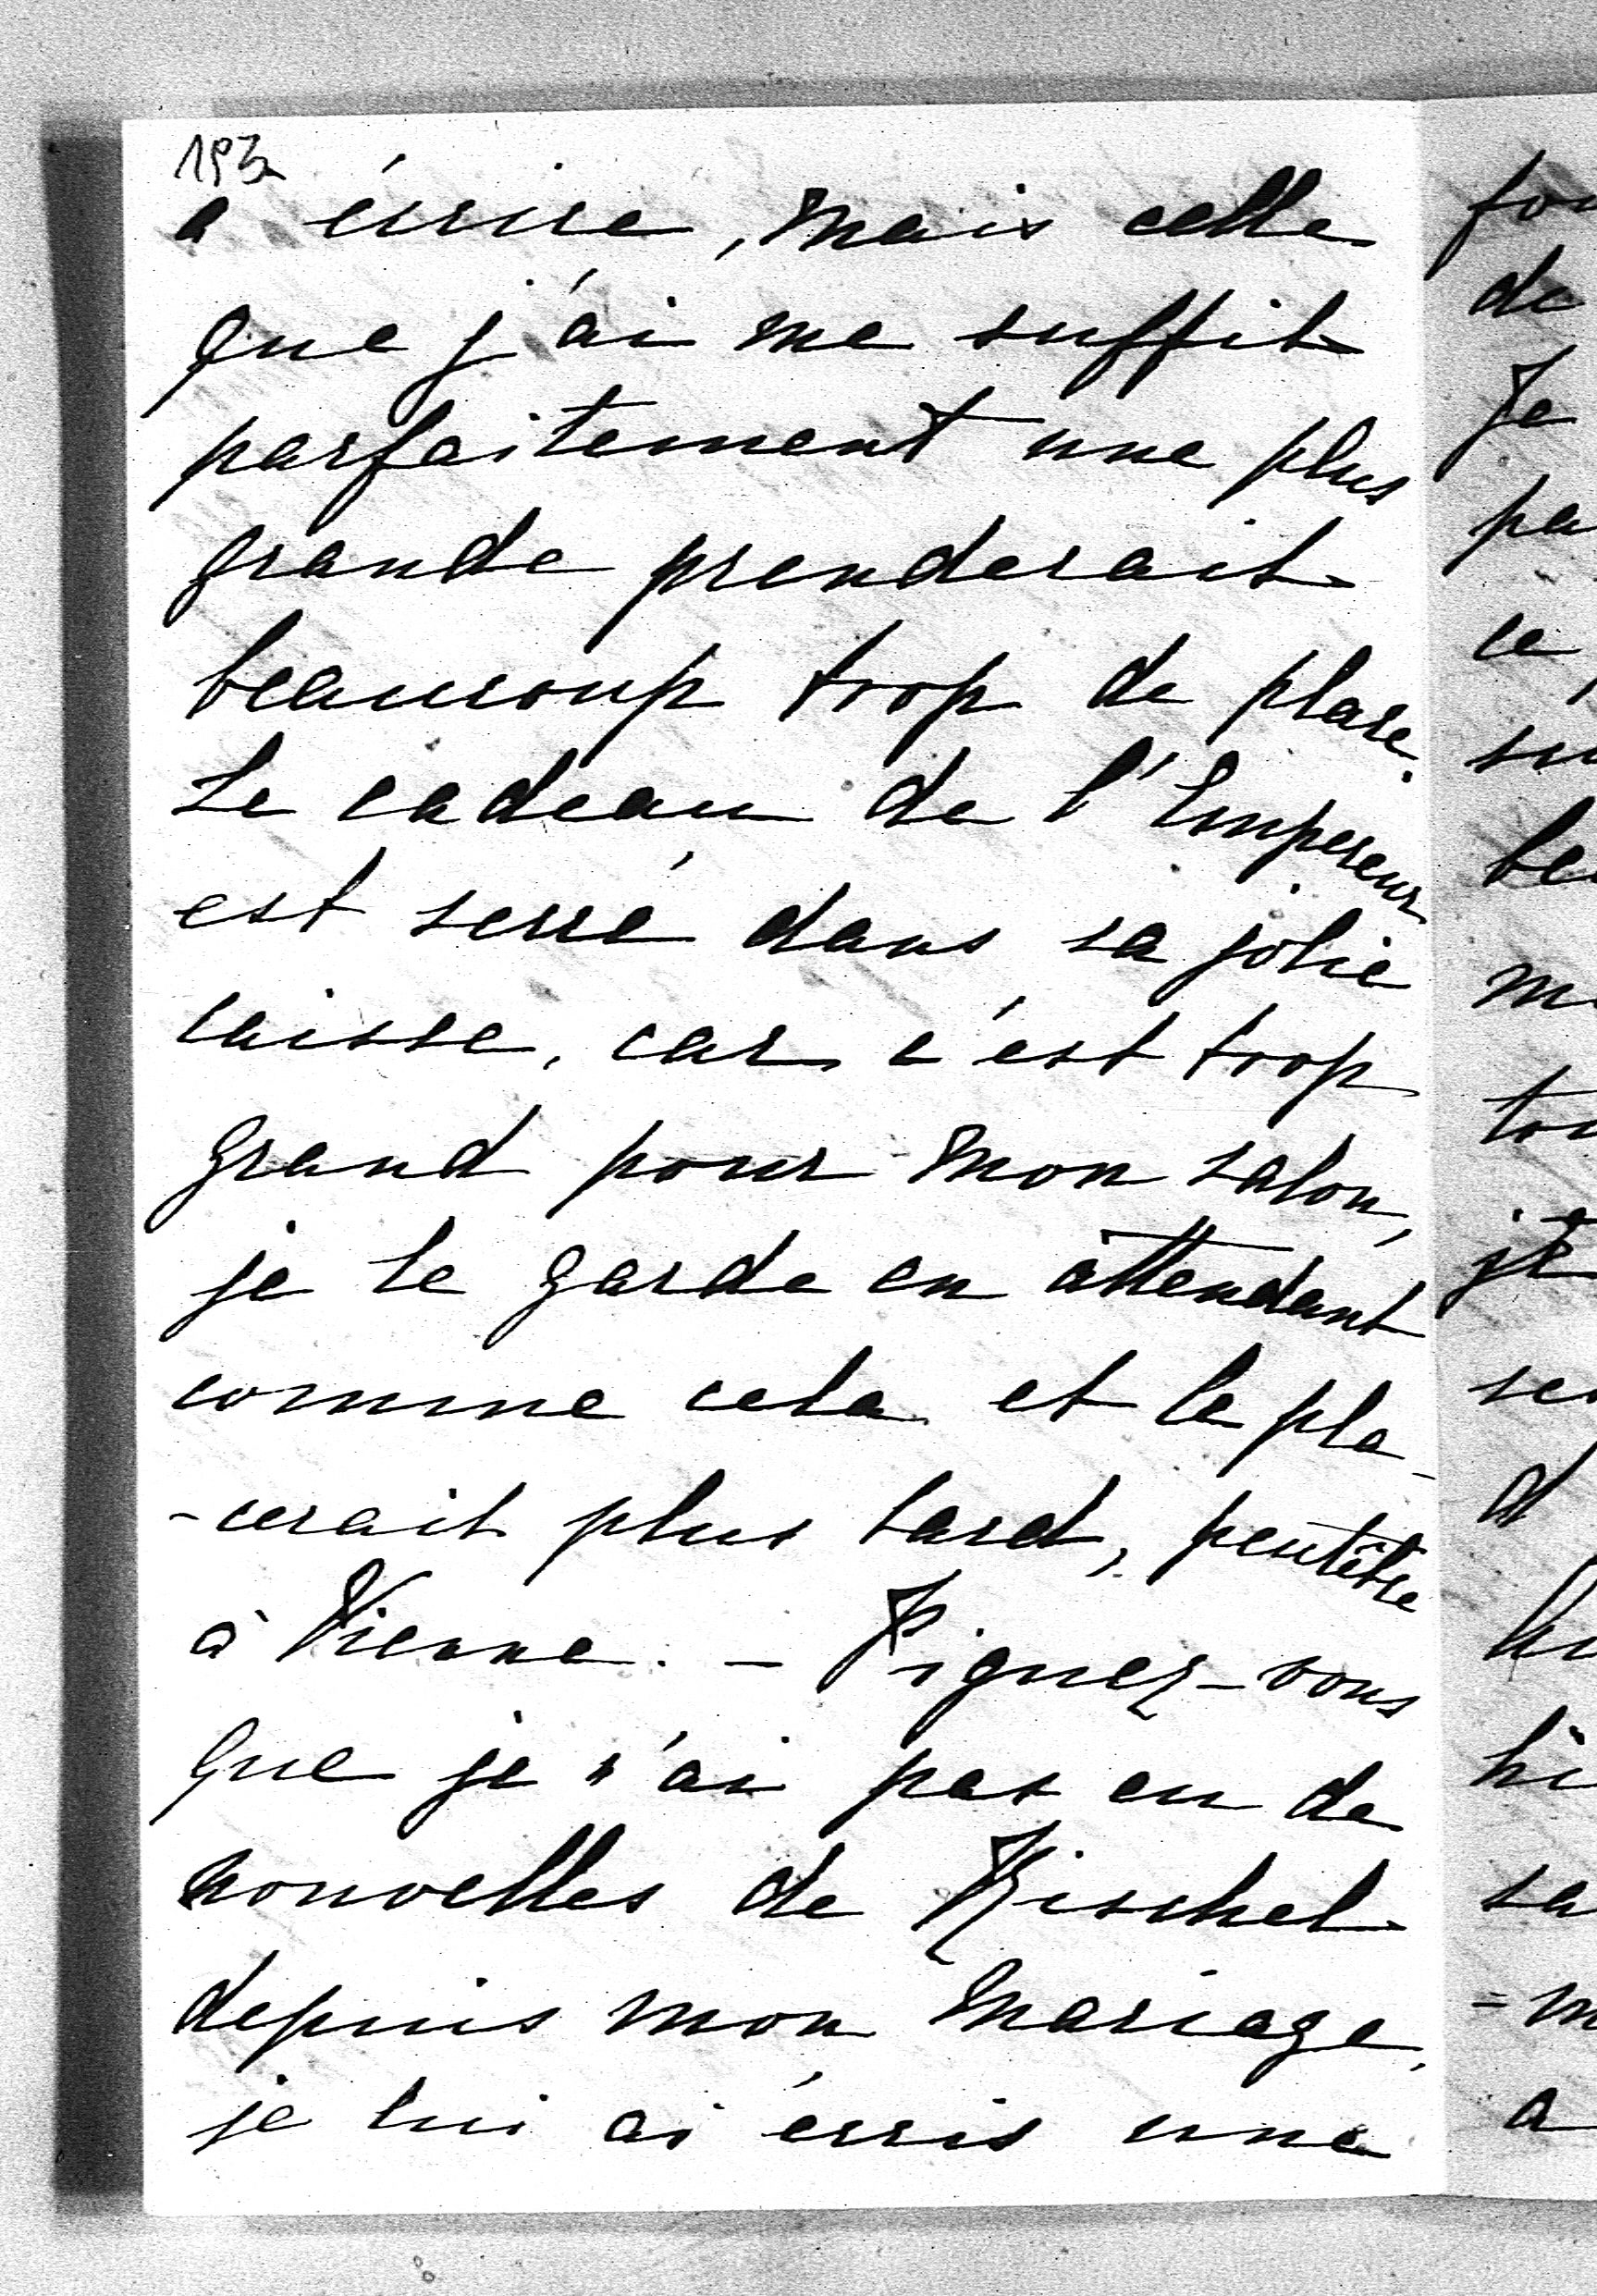 193
à écrire, mais celle
que j'ai me suffit
parfaitement une plus
grande prenderait
beaucoup trop de place.
Le cadeau de l'Empereur
est serré dans sa jolie
caisse, car c'est trop
grand pour mon salon,
je le garde en attendant
comme cela et le pla-
-cerait plus tard, peutêtre
à Vienne. - Figurez-vous
que je n'ai pas eu de
nouvelles de Kischel
depuis mon mariage,
je lui ai écris une